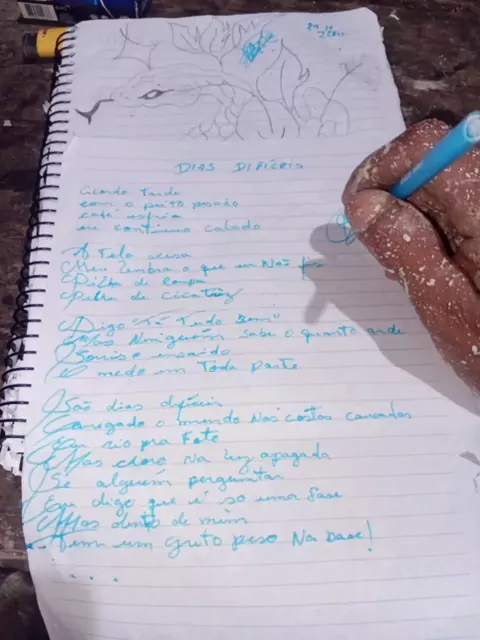 DIAS DIFÍCEIS
Acordo Tarde
com o peito pesado
café esfria
eu continuo calado
A Tela acesa
Meu Lembra o que eu Não fiz
Pilha de roupa
Pilha de Cicatriz
Digo "Tá Tudo Bem"
Mas Ninguém sabe o quanto arde
Sorriso ensaiado
E medo em Toda parte
São dias difíceis
Carregado o mundo Nas costas cansadas
Eu rio pra Foto
Mas choro Na luz apagada
Se alguém perguntar
Eu digo que é so uma fase
Mas dento de mim
Tem um grito preso Na base!
...